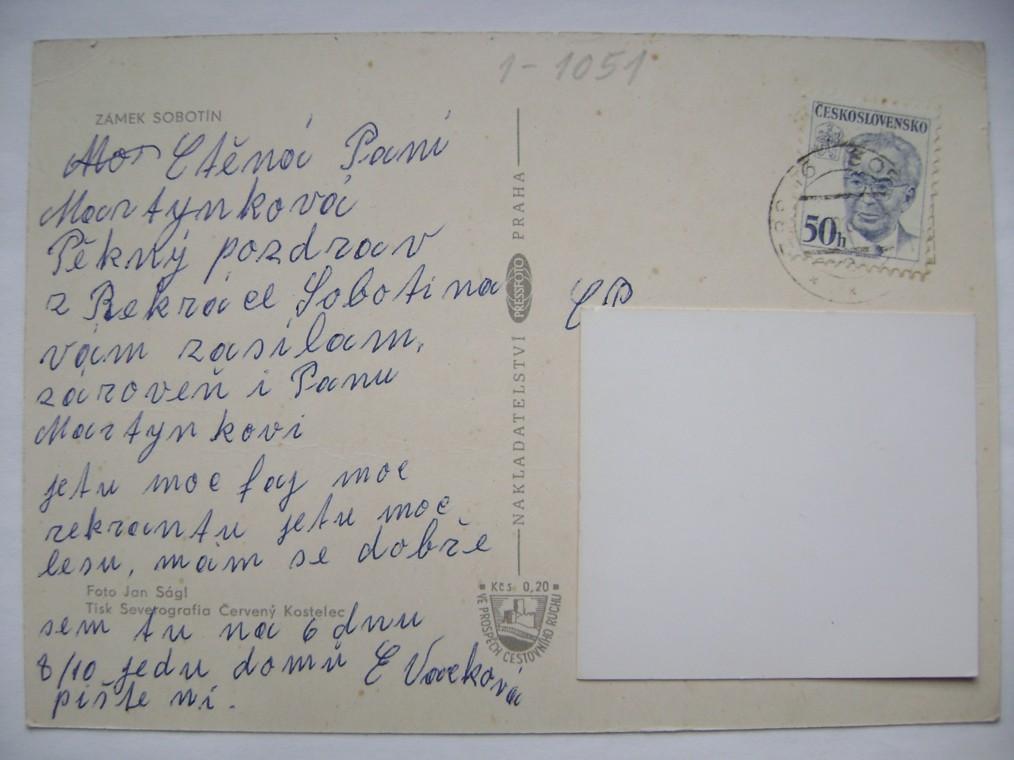 1-1051
ZÁMEK SOBOTÍN
Ctěná Paní
Martynková
Pěkný pozdrav
z Rekráce Sobotína
vám zasílam,
zároveň i Panu
Martynkovi
jetu moc faj moc
rekrantu jetu moc
lesu, mám se dobře
Foto Jan Ságl
Tisk Severografia Červený Kostelec
sem tu na 6 dnu
8/10 jedu domů E Vaveková
pište ní.
NAKLADATELSTVÍ PRESSFOTO PRAHA
Kčs 0,20
VE PROSPĚCH CESTOVNÍHO RUCHU
ČESKOSLOVENSKO
50h